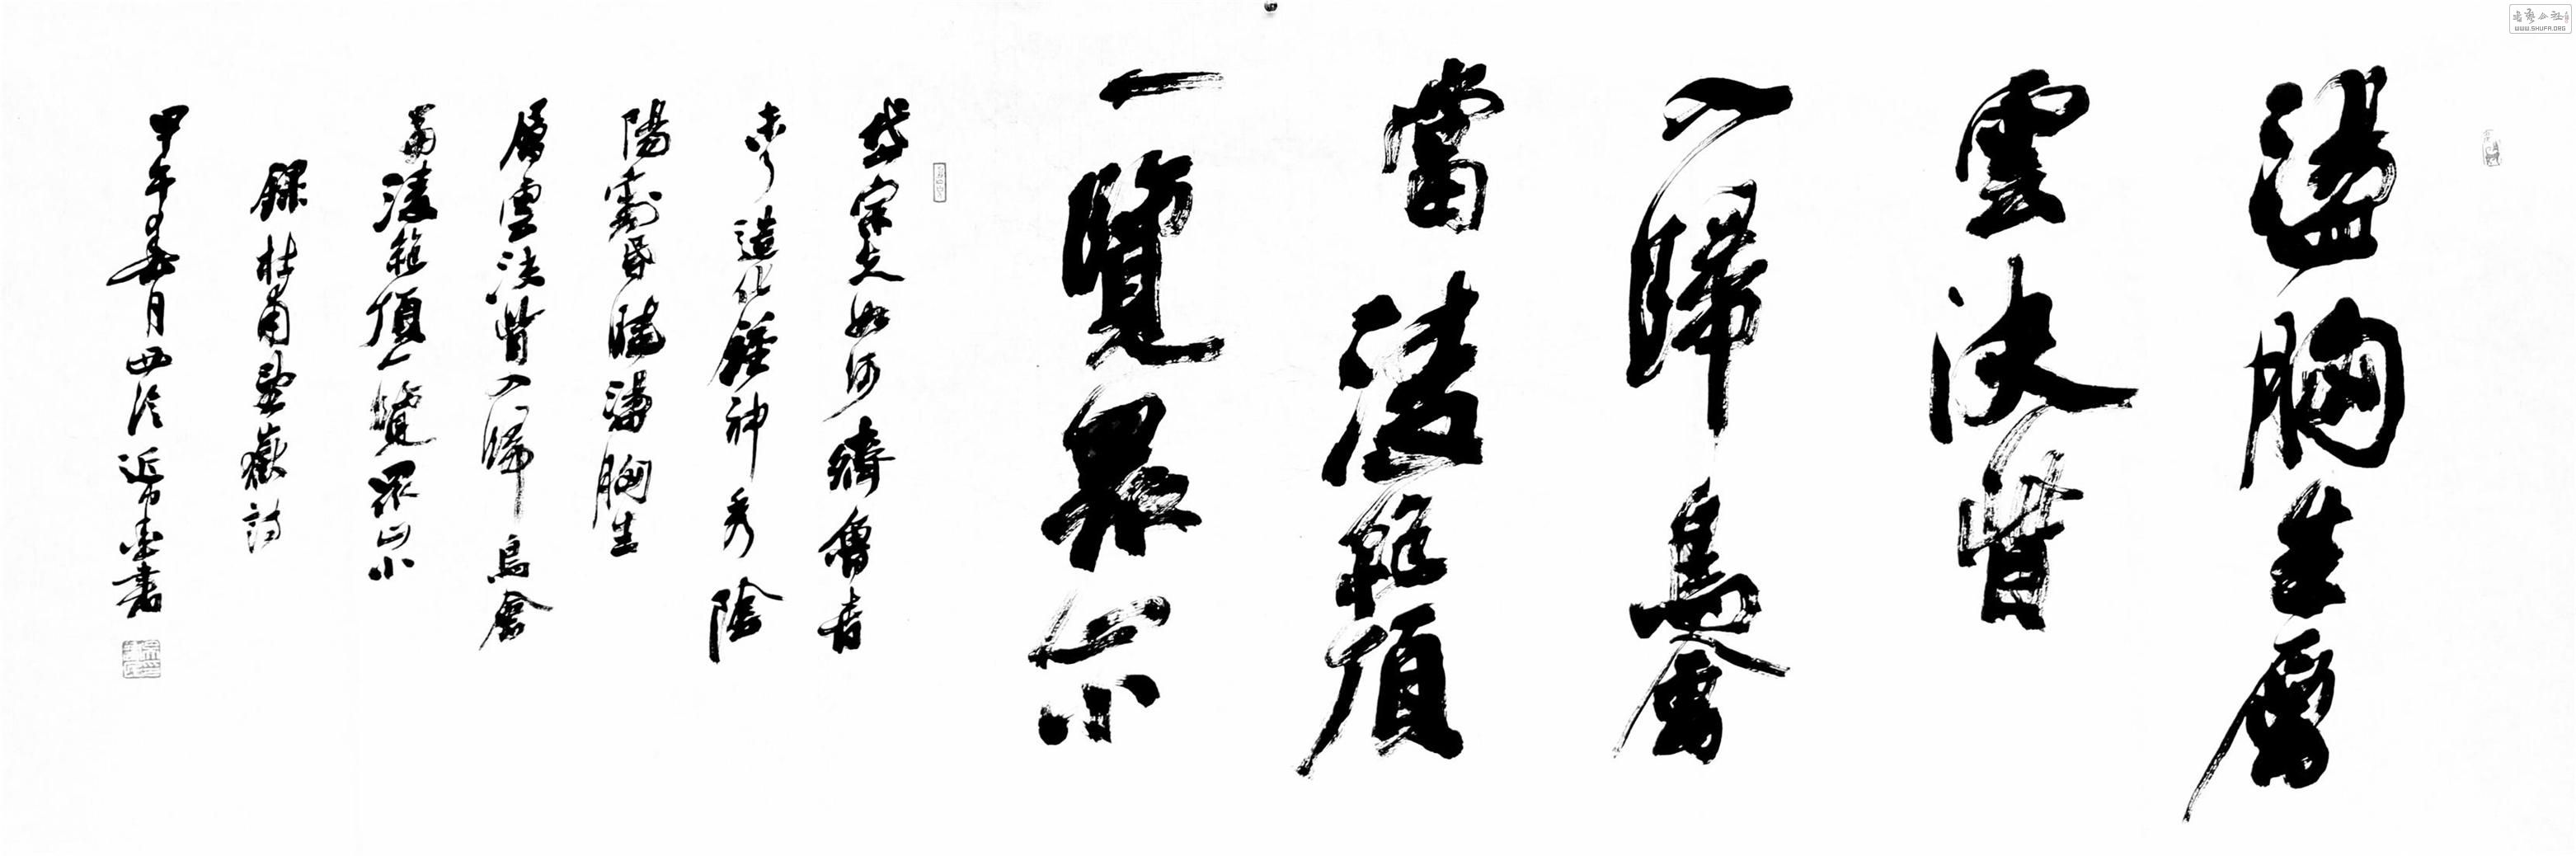 盪胸生層
雲決眥
入歸鳥會
當淩絕頂
一覽眾山小
岱宗夫如何齊魯青
未了造化鍾神秀陰
陽割昏曉蕩胸生
層雲決眥入歸鳥會
當淩絕頂一覽眾山小
錄杜甫望嶽詩
甲午月西泠書
书艺公社
WWW.SHUFA.ORG